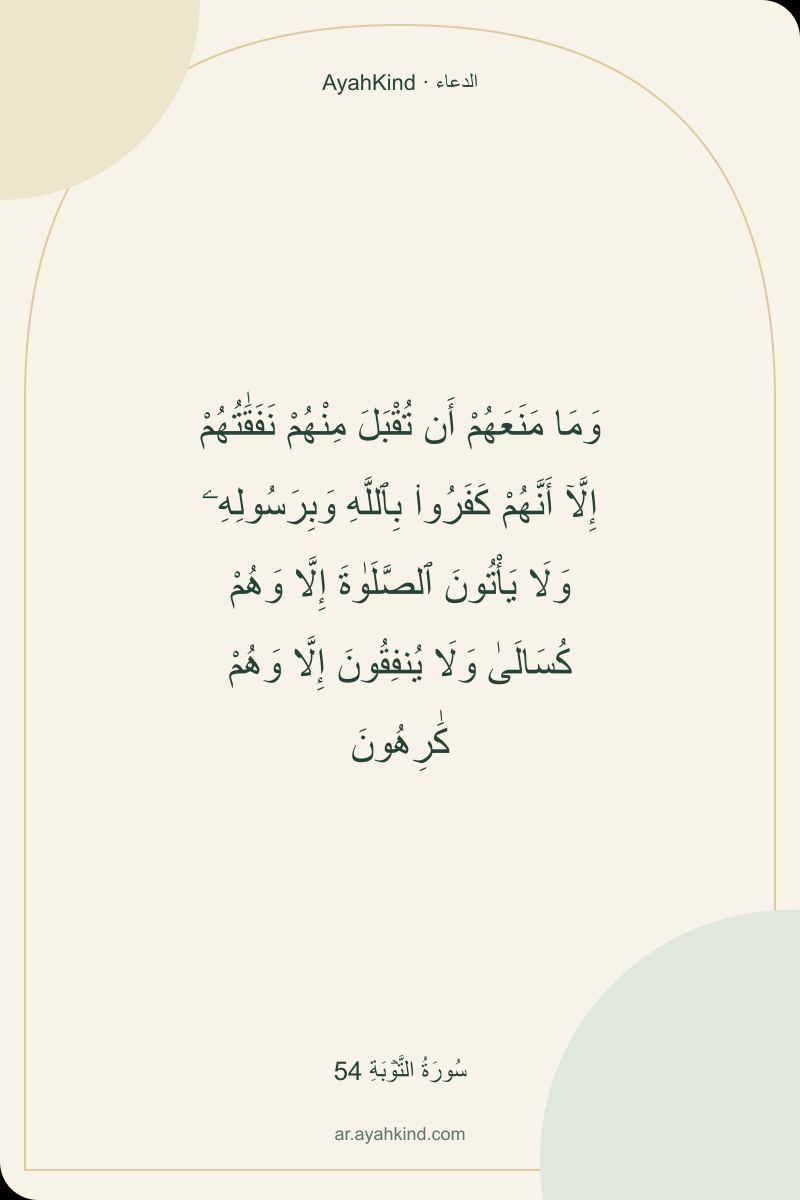 AyahKind · الدعاء
وَمَا مَنَعَهُمْ أَن تُقْبَلَ مِنْهُمْ نَفَقَٰتُهُمْ
إِلَّآ أَنَّهُمْ كَفَرُوا۟ بِٱللَّهِ وَبِرَسُولِهِۦ
وَلَا يَأْتُونَ ٱلصَّلَوٰةَ إِلَّا وَهُمْ
كُسَالَىٰ وَلَا يُنفِقُونَ إِلَّا وَهُمْ
كَٰرِهُونَ
سُورَةُ التَّوۡبَةِ 54
ar.ayahkind.com